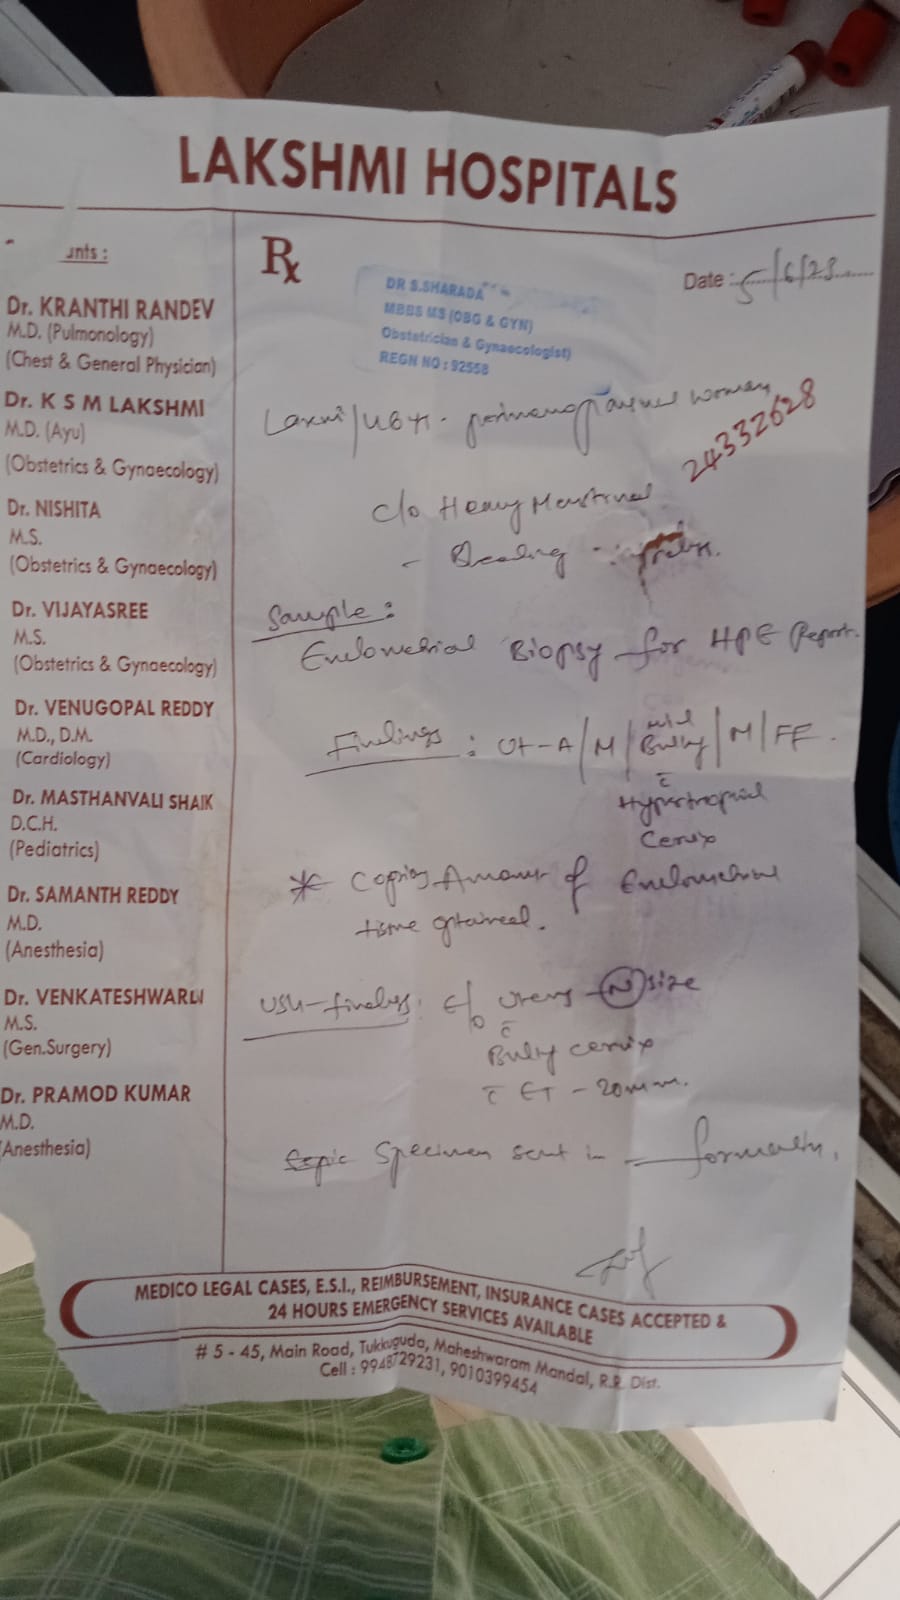 LAKSHMI HOSPITALS
unts :
Dr. KRANTHI RANDEV
M.D. (Pulmonology)
(Chest & General Physician)
Dr. K S M LAKSHMI
M.D. (Ayu)
(Obstetrics & Gynaecology)
Dr. NISHITA
M.S.
(Obstetrics & Gynaecology)
Dr. VIJAYASREE
M.S.
(Obstetrics & Gynaecology)
Dr. VENUGOPAL REDDY
M.D., D.M.
(Cardiology)
Dr. MASTHANVALI SHAIK
D.C.H.
(Pediatrics)
Dr. SAMANTH REDDY
M.D.
(Anesthesia)
Dr. VENKATESHWARLU
M.S.
(Gen.Surgery)
Dr. PRAMOD KUMAR
M.D.
(Anesthesia)
Rx
DR S.SHARADA
MBBS MS (OBG & GYN)
Obstetrician & Gynaecologist)
REGN NO : 92558
Date : 5/6/23
Laxmi/ perimenopausal woman
24332628
c/o Heavy Menstrual
- Bleeding
Sample :
Endometrial Biopsy for HPE Report.
Findings : Ut-A/M/ mild Bulky/M/FF.
c̄
Hypertropied
Cervix
* Copious Amount of Endometrial
tissue obtained.
USG-findings: E/o Uterus - (N) size
c̄
Bulky cervix
c̄ ET - 20mm.
Specimen sent in formalin.
MEDICO LEGAL CASES, E.S.I., REIMBURSEMENT, INSURANCE CASES ACCEPTED &
24 HOURS EMERGENCY SERVICES AVAILABLE
# 5 - 45, Main Road, Tukkuguda, Maheshwaram Mandal, R.R. Dist.
Cell : 9948729231, 9010399454